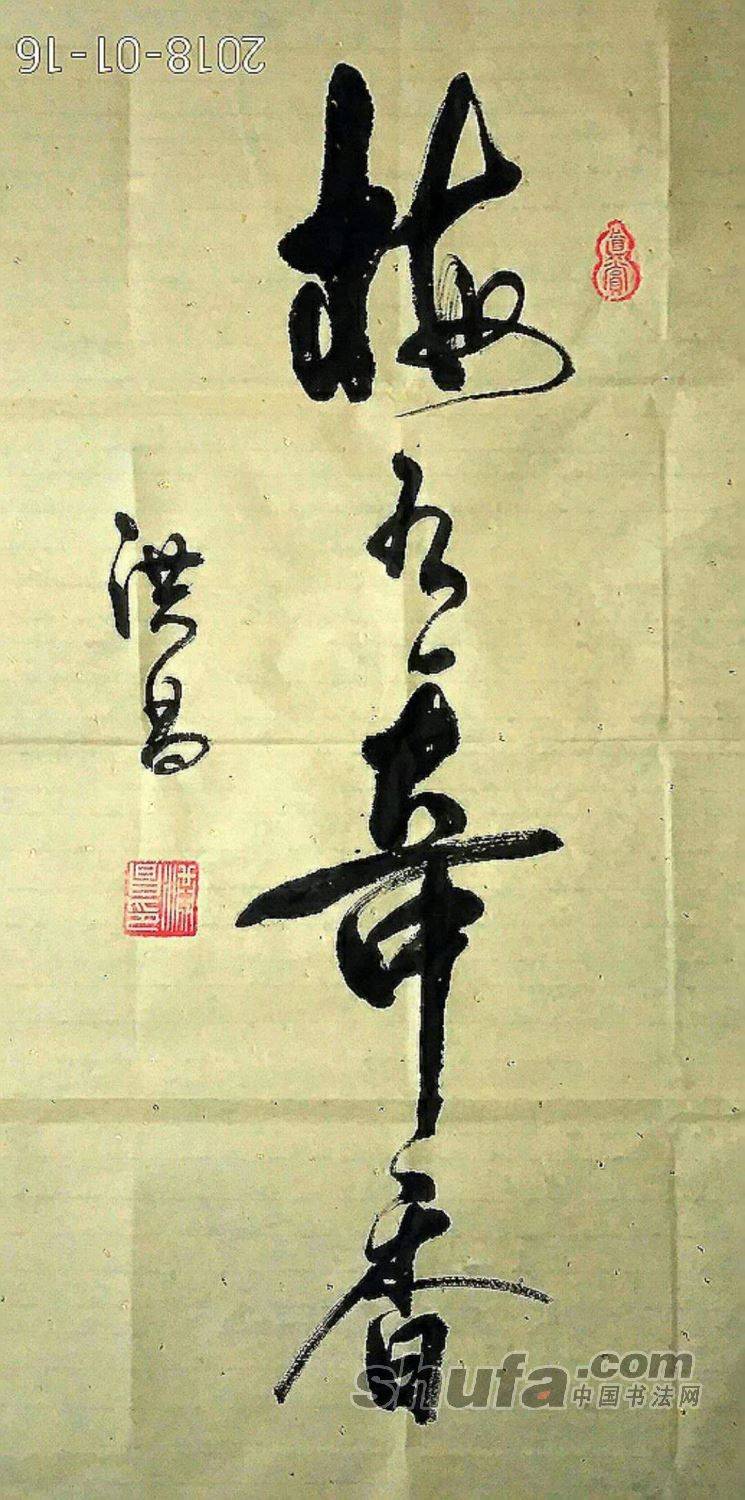 2018-01-16
梅有奇香
洪昌
shufa.com
中国书法网